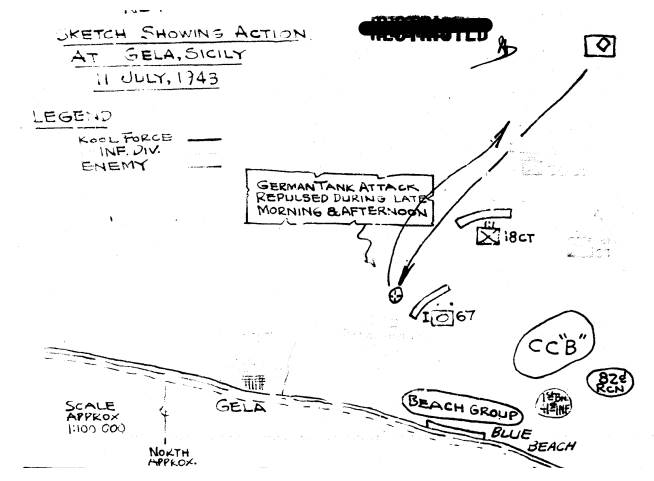 SKETCH SHOWING ACTION
AT GELA, SICILY
11 JULY, 1943
RESTRICTED
LEGEND
KOOL FORCE
INF. DIV.
ENEMY
GERMAN TANK ATTACK
REPULSED DURING LATE
MORNING & AFTERNOON
18CT
I 67
CC"B"
82d
RCN
BEACH GROUP
BLUE
BEACH
GELA
SCALE
APPROX
1:100 000
NORTH
APPROX.